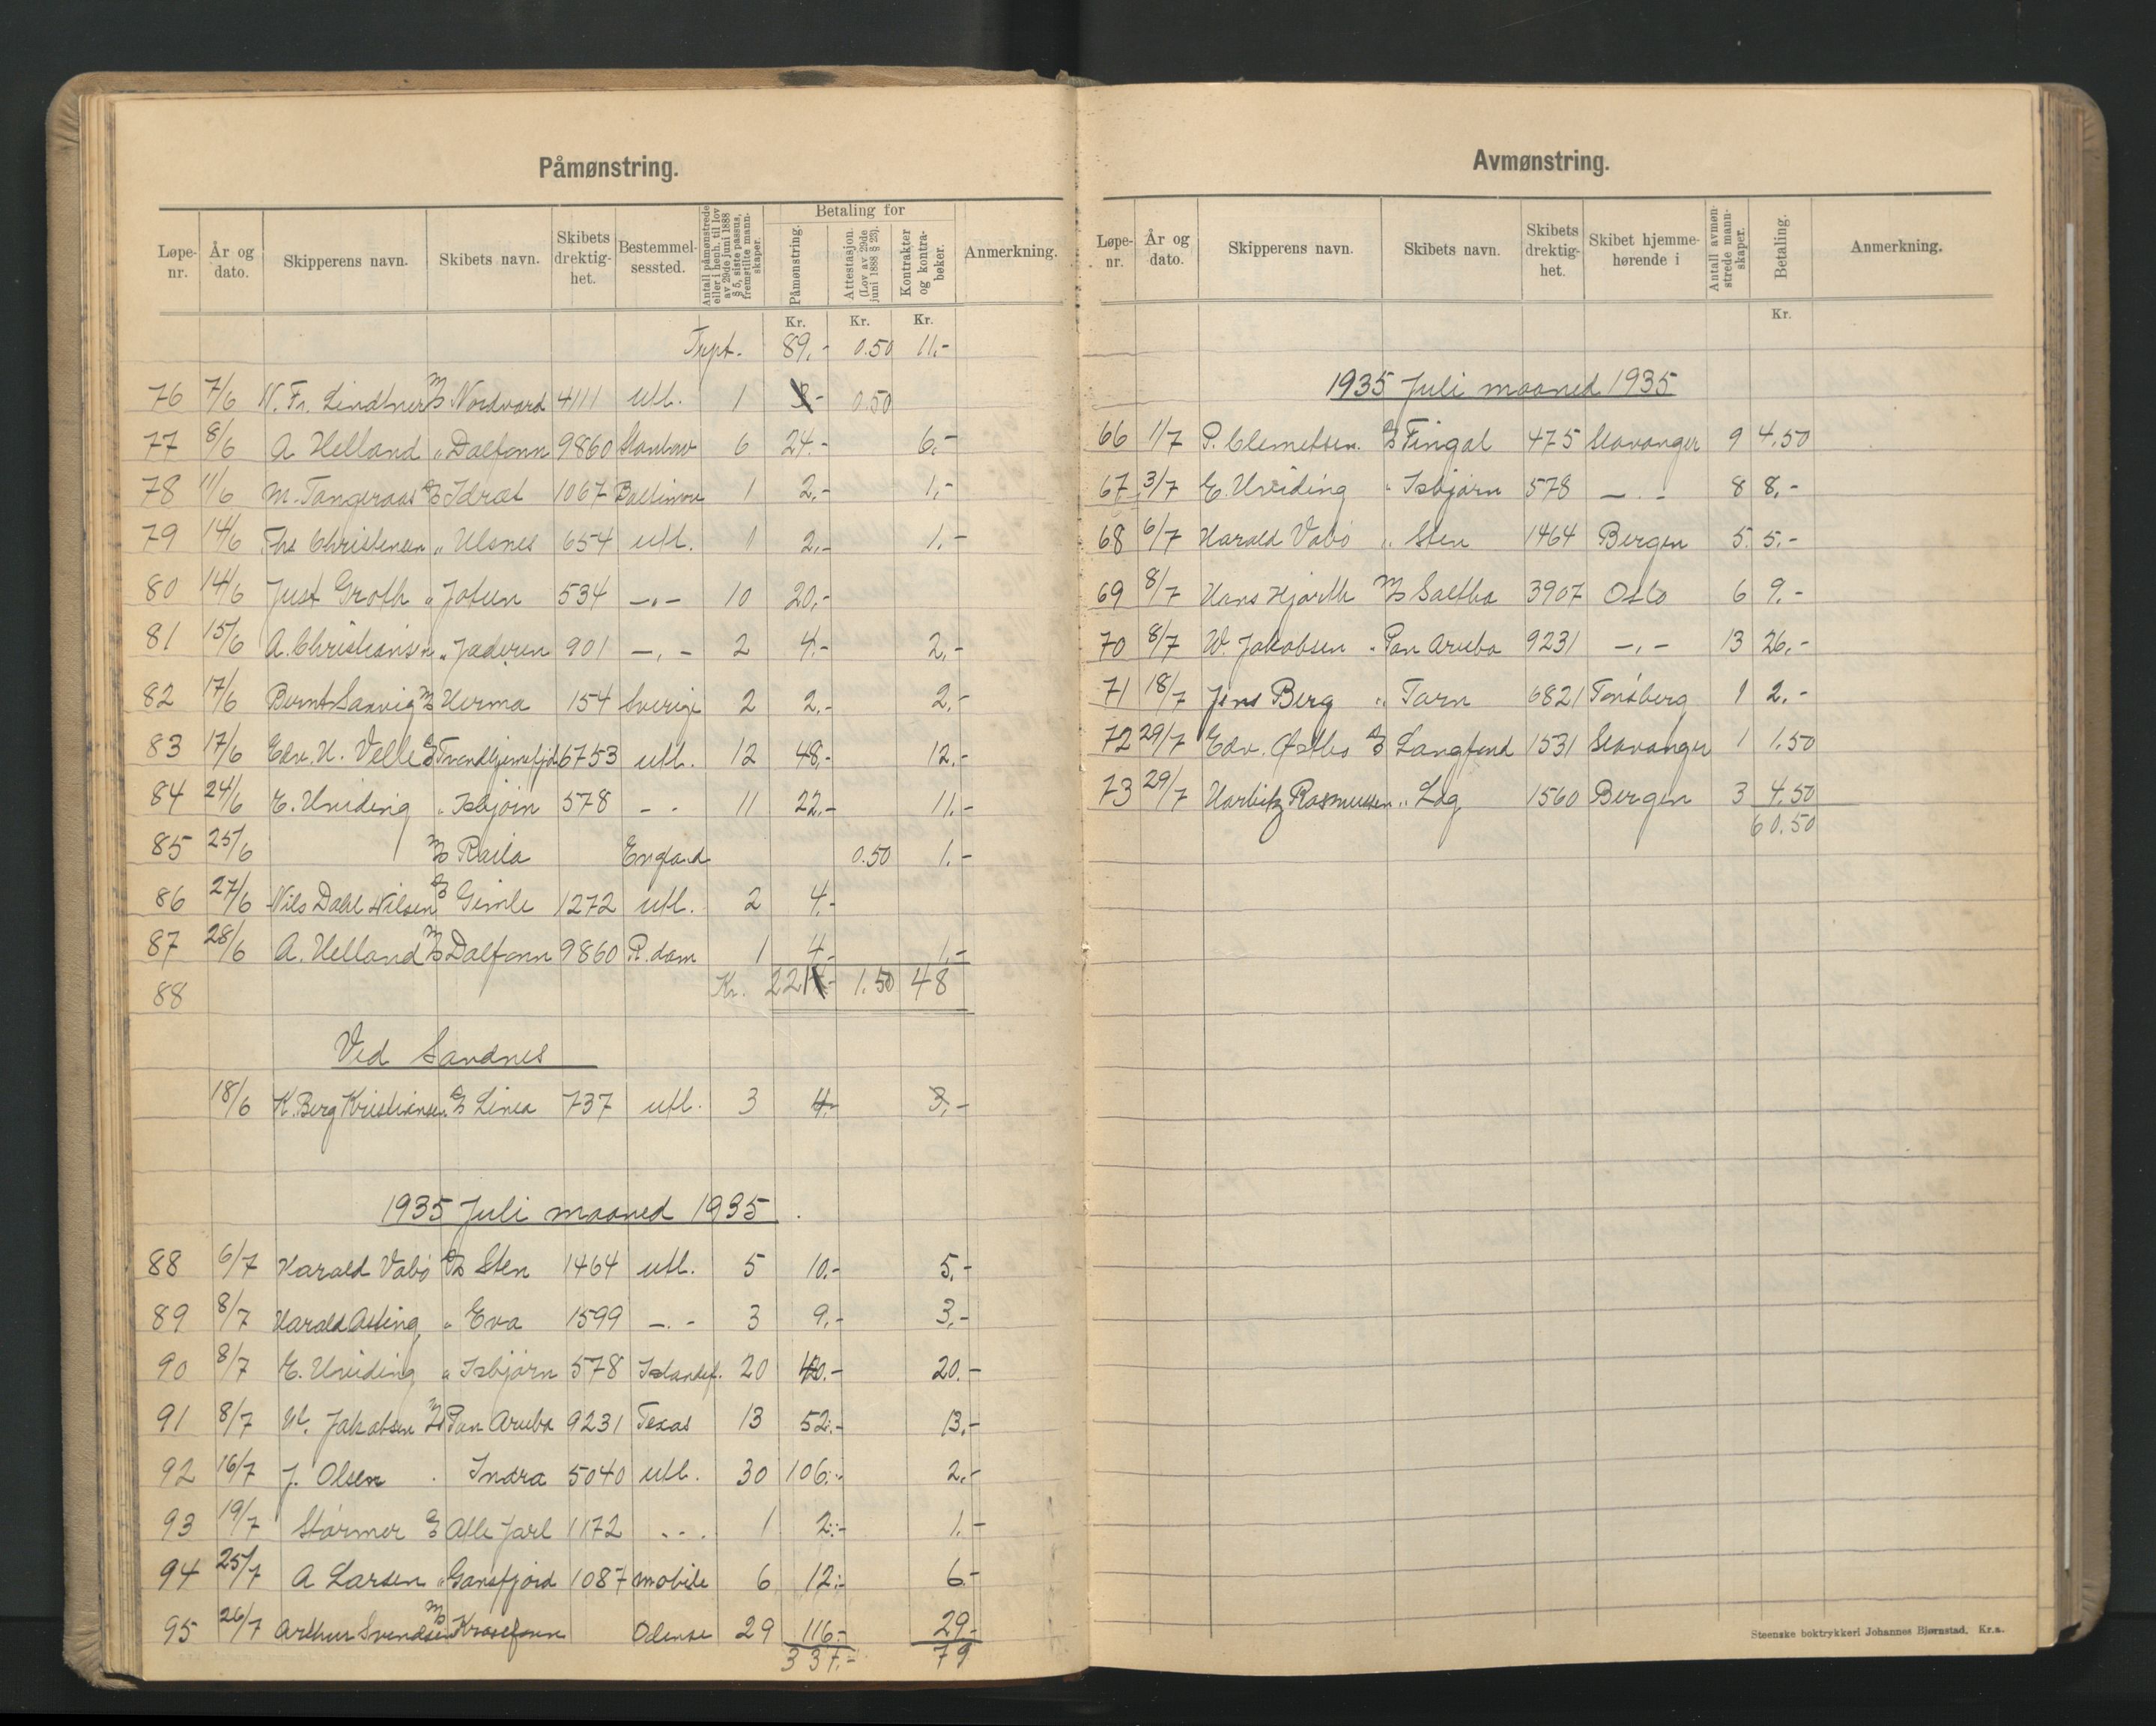 Påmønstring.
Løpe-nr. År og dato. Skipperens navn. Skibets navn. Skibets drektig-het. Bestemmel-sessted. Antall påmønstrede eller i henh. til lov av 29de juni 1888 § 5, siste passus, fremstilte mann-skaper. Betaling for Påmønstring. Attestasjon. (Lov av 29de juni 1888 § 23). Kontrakter og kontra-bøker. Anmerkning.
Kr. Kr. Kr.
Trpt. 89,- 0.50 11.-
76 7/6 N. Fr. Lindtner M/S Nordvard 4111 utl. 1 0.50
77 8/6 A Helland " Dalfonn 9860 6 24.- 6.-
78 11/6 M. Tangeraas D/S Idræt 1067 Baltimore 1 2,- 1,-
79 14/6 Ths Christensen " Ulsnes 654 utl. 1 2,- 1.-
80 14/6 Just Groth " Jotun 534 -"- 10 20,-
81 15/6 A. Christiansen " Jæderen 901 -"- 2 4.- 2,-
82 17/6 Bernt Sanvig M/S Herma 154 Sverige 2 2,- 2,-
83 17/6 Edv. H. Velle D/S Trondhjemsfjord 6753 utl. 12 48,- 12.-
84 24/6 E. Hviding " Isbjørn 578 - - 11 22,- 11,-
85 25/6 M/S Raila England 0.50 1.-
86 27/6 Nils Dahl Nilsen D/S Gimle 1272 utl. 2 4,-
87 28/6 A. Helland M/S Dalfonn 9860 R.dam 1 4,- 1,-
88 Kr. 221.- 1.50 48
Ved Sandnes
18/6 K. Berg Kristiansen D/S Linea 737 utl. 3 4.- 3,-
1935 Juli maaned 1935.
88 6/7 Harald Vabø D/S Sten 1464 utl. 5 10.- 5.-
89 8/7 Harald Asting " Eva 1599 -"- 3 9,- 3,-
90 8/7 E. Hviding " Isbjørn 578 Islandsf. 20 40.- 20.-
91 8/7 W. Jakobsen M/S Pan Aruba 9231 Texas 13 52.- 13,-
92 16/7 J. Olsen " Indra 5040 utl. 30 106.- 2.-
93 19/7 Størmer D/S Atle Jarl 1172 - - 1 2.- 1.-
94 25/7 A Larsen " Gansfjord 1087 Mobile 6 12.- 6-
95 26/7 Arthur Svendsen M/S Krossfonn Odense 29 116.- 29-
337.- 79
Avmønstring.
Løpe-nr. År og dato. Skipperens navn. Skibets navn. Skibets drektig-het. Skibet hjemme-hørende i Antall avmøn-strede mann-skaper. Betaling. Anmerkning.
Kr.
1935 Juli maaned 1935
66 1/7 P. Clemetsen. D/S Fingal 475 Stavanger 9 4.50
67 3/7 E. Hviding " Isbjørn 578 -"- 8 8,-
68 6/7 Harald Vabø " Sten 1464 Bergen 5. 5.-
69 8/7 Hans Hjorth M/S Saltha 3907 Oslo 6 9.-
70 8/7 W. Jakobsen " Pan Aruba 9231 -"- 13 26,-
71 18/7 Jens Berg " Tarn 6821 Tønsberg 1 2.-
72 29/7 Edv. Østbø D/S Langfond 1531 Stavanger 1 1.50
73 29/7 Harbitz Rasmussen " Log 1560 Bergen 3 4.50
60.50
Steenske boktrykkeri Johannes Bjørnstad. Kr.a.